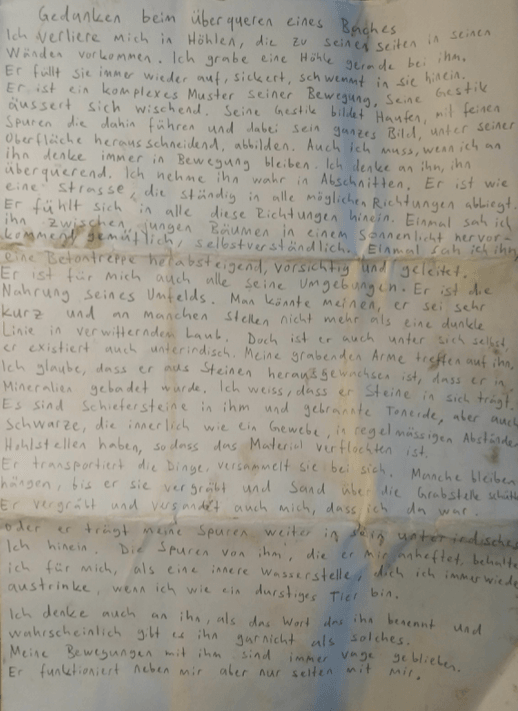 Gedanken beim überqueren eines Baches
Ich verliere mich in Höhlen, die zu seinen Seiten in seinen
Wänden vorkommen. Ich grabe eine Höhle gerade bei ihm.
Er füllt sie immer wieder auf, sickert, schwemmt in sie hinein.
Er ist ein komplexes Muster seiner Bewegung, seine Gestik
äussert sich wischend. Seine Gestik bildet Haufen, mit feinen
Spuren die dahin führen und dabei sein ganzes Bild, unter seiner
Oberfläche herausschneidend, abbilden. Auch ich muss, wenn ich an
ihn denke immer in Bewegung bleiben. Ich denke an ihn, ihn
überquerend. Ich nehme ihn wahr in Abschnitten. Er ist wie
eine Strasse, die ständig in alle möglichen Richtungen abbiegt.
Er fühlt sich in alle diese Richtungen hinein. Einmal sah ich
ihn zwischen jungen Bäumen in einem Sonnenlicht hervor-
kommend gemütlich, selbstverständlich. Einmal sah ich ihn
eine Betontreppe herabsteigend, vorsichtig und geleitet.
Er ist für mich auch alle seine Umgebungen. Er ist die
Nahrung seines Umfelds. Man könnte meinen, er sei sehr
kurz und an manchen Stellen nicht mehr als eine dunkle
Linie in verwitterndem Laub. Doch ist er auch unter sich selbst,
er existiert auch unterirdisch. Meine grabenden Arme treffen auf ihn,
Ich glaube, dass er aus Steinen herausgewachsen ist, dass er in
Mineralien gebadet wurde. Ich weiss, dass er Steine in sich trägt.
Es sind Schiefersteine in ihm und gebrannte Tonerde, aber auch
schwarze, die innerlich wie ein Gewebe, in regelmässigen Abständen
Hohlstellen haben, sodass das Material verflochten ist.
Er transportiert die Dinge, versammelt sie bei sich. Manche bleiben
hängen, bis er sie vergräbt und Sand über die Grabstelle
Er vergräbt und versandet auch mich, dass ich da war.
oder er trägt meine Spuren weiter in sein unterirdisches
Ich hinein. Die Spuren von ihm, die er mir anheftet, behalte
ich für mich, als eine innere Wasserstelle, ich immer wieder
austrinke, wenn ich wie ein durstiges Tier bin.
Ich denke auch an ihn, als das Wort das ihn benennt und
wahrscheinlich gibt es ihn garnicht als solches.
Meine Bewegungen mit ihm sind immer vage geblieben.
Er funktioniert neben mir aber nur selten mit mir.